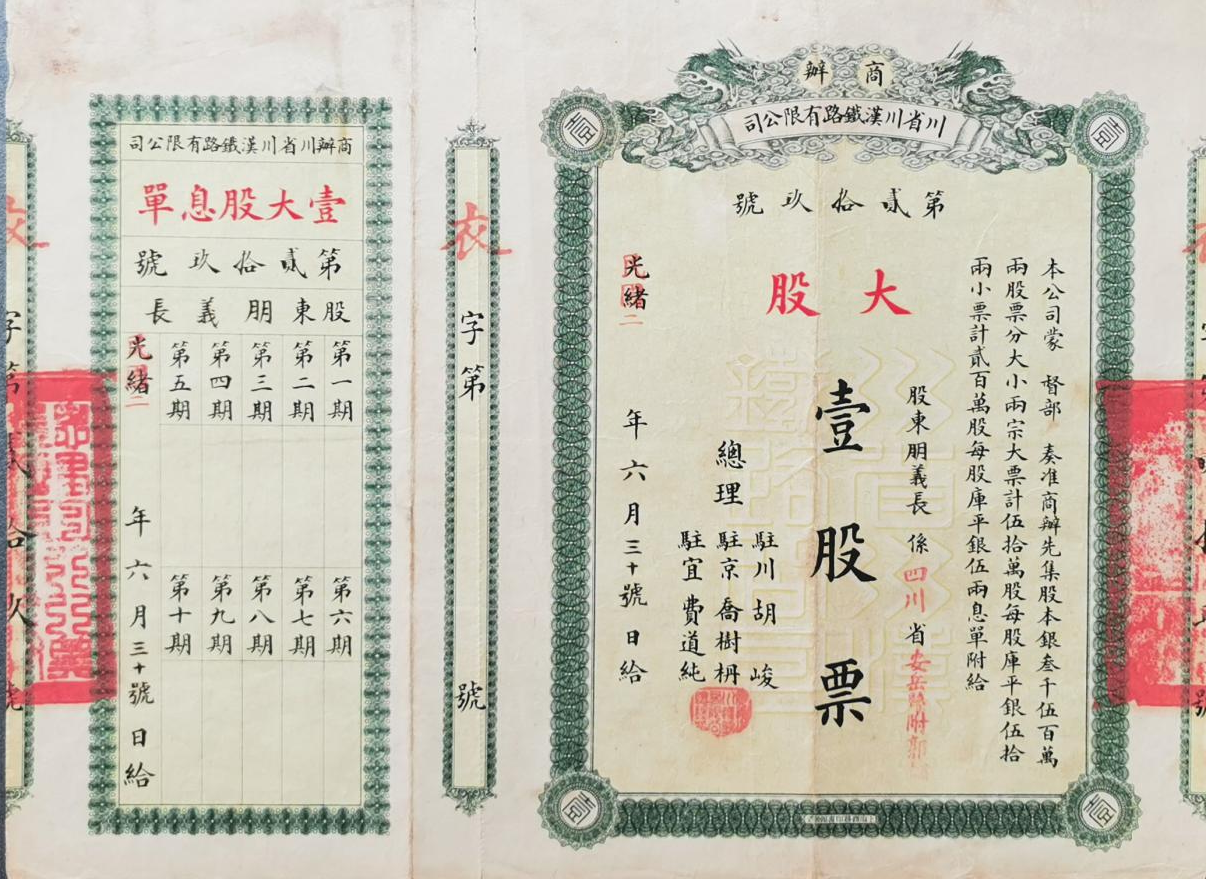 商辦
川省川漢鐵路有限公司
第貳拾玖號
大股
本公司蒙 督部 奏准商辦先集股本銀叁千伍百萬
兩股票分大小兩宗大票計伍拾萬股每股庫平銀伍拾
兩小票計貳百萬股每股庫平銀伍兩息單附給
股東朋義長 係四川省安岳縣附郭
壹股票
總理
駐川胡峻
駐京喬樹枬
駐宜費道純
光緒 年六月三十號日給
衣字第 號
商辦川省川漢鐵路有限公司
壹大股息單
第貳拾玖號
股東朋義長
第一期
第二期
第三期
第四期
第五期
第六期
第七期
第八期
第九期
第十期
光緒 年六月三十號日給